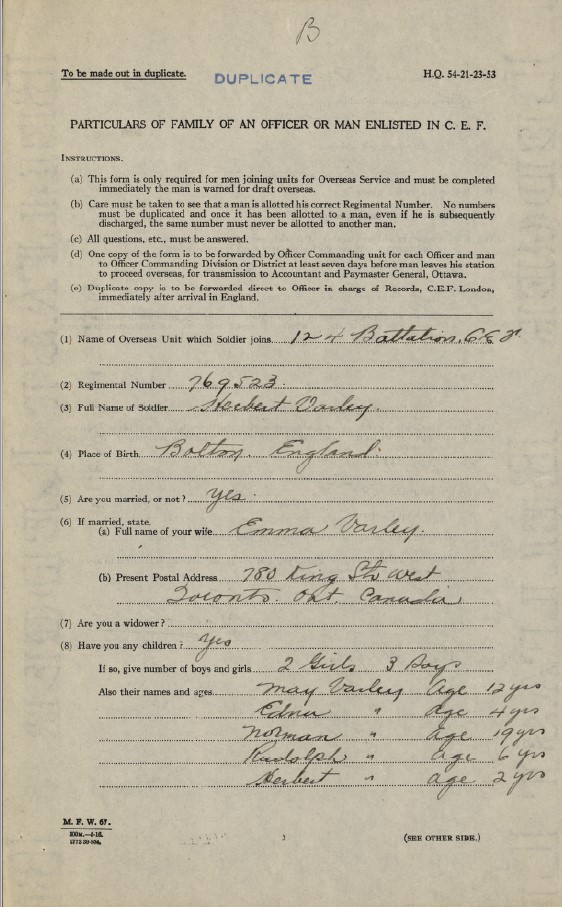 B
To be made out in duplicate. DUPLICATE H.Q. 54-21-23-53
PARTICULARS OF FAMILY OF AN OFFICER OR MAN ENLISTED IN C. E. F.
INSTRUCTIONS.
(a) This form is only required for men joining units for Overseas Service and must be completed
immediately the man is warned for draft overseas.
(b) Care must be taken to see that a man is allotted his correct Regimental Number. No numbers
must be duplicated and once it has been allotted to a man, even if he is subsequently
discharged, the same number must never be allotted to another man.
(c) All questions, etc., must be answered.
(d) One copy of the form is to be forwarded by Officer Commanding unit for each Officer and man
to Officer Commanding Division or District at least seven days before man leaves his station
to proceed overseas, for transmission to Accountant and Paymaster General, Ottawa.
(e) Duplicate copy is to be forwarded direct to Officer in charge of Records, C.E.F. London,
immediately after arrival in England.
(1) Name of Overseas Unit which Soldier joins 124 Battalion, C.E.F.
(2) Regimental Number 769523
(3) Full Name of Soldier Herbert Varley.
(4) Place of Birth Bolton, England.
(5) Are you married, or not? Yes.
(6) If married, state,
(a) Full name of your wife Emma Varley.
(b) Present Postal Address 780 King St. West
Toronto. Ont. Canada
(7) Are you a widower?
(8) Have you any children? Yes
If so, give number of boys and girls 2 Girls 3 Boys
Also their names and ages. May Varley Age 12 yrs
Edna " Age 4 yrs
Norman " Age 19 yrs
Rudolph " Age 6 yrs
Herbert " age 2 yrs
M. F. W. 67.
200M.—4-16.
1772 39-934.
(SEE OTHER SIDE.)